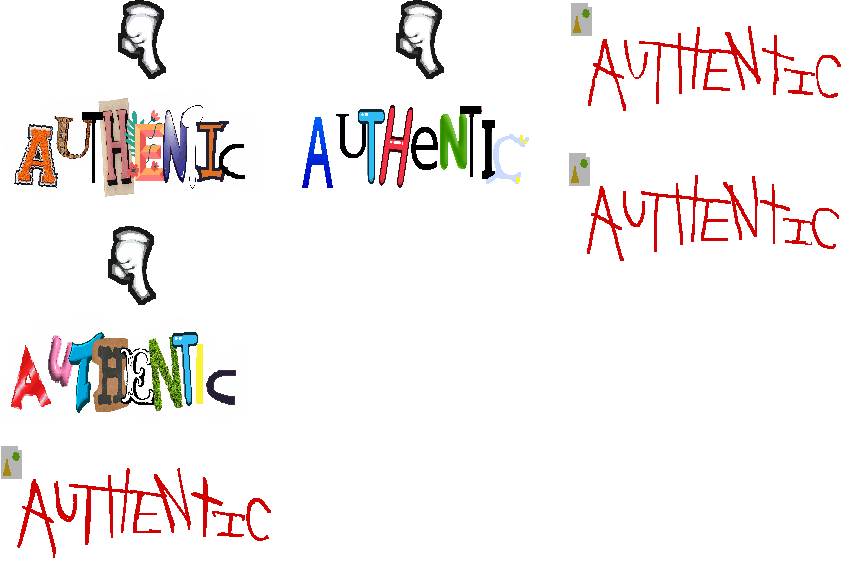 AUTHENTIC
AUTHeNTIC
AUTHENTIC
AUTHENTIC
AUTHENTIC
AUTHENTIC